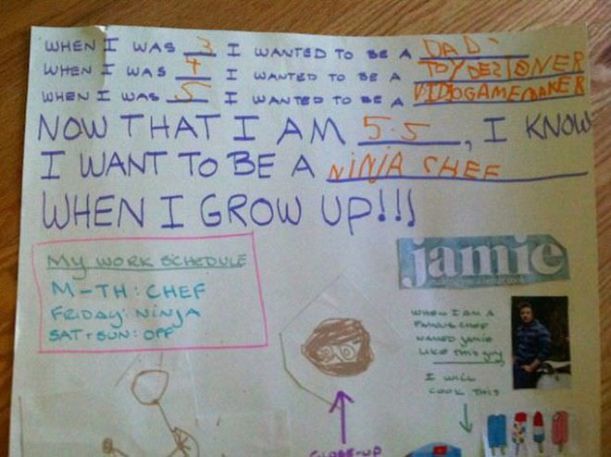 WHEN I WAS 3 I WANTED TO BE A DAD
WHEN I WAS 4 I WANTED TO BE A TOY DEZIGNER
WHEN I WAS 5 I WANTED TO BE A VIDIOGAMEMAKER
NOW THAT I AM 5.5, I KNOW
I WANT TO BE A NINJA CHEF
WHEN I GROW UP!!!
MY WORK SCHEDULE
M-TH: CHEF
FRIDAY: NINJA
SAT+SUN: OFF
jamie
WHEN I AM A
FAMOUS CHEF
NAMED JAMIE
LIKE THIS GUY,
I WILL
COOK THIS
CLOSE-UP